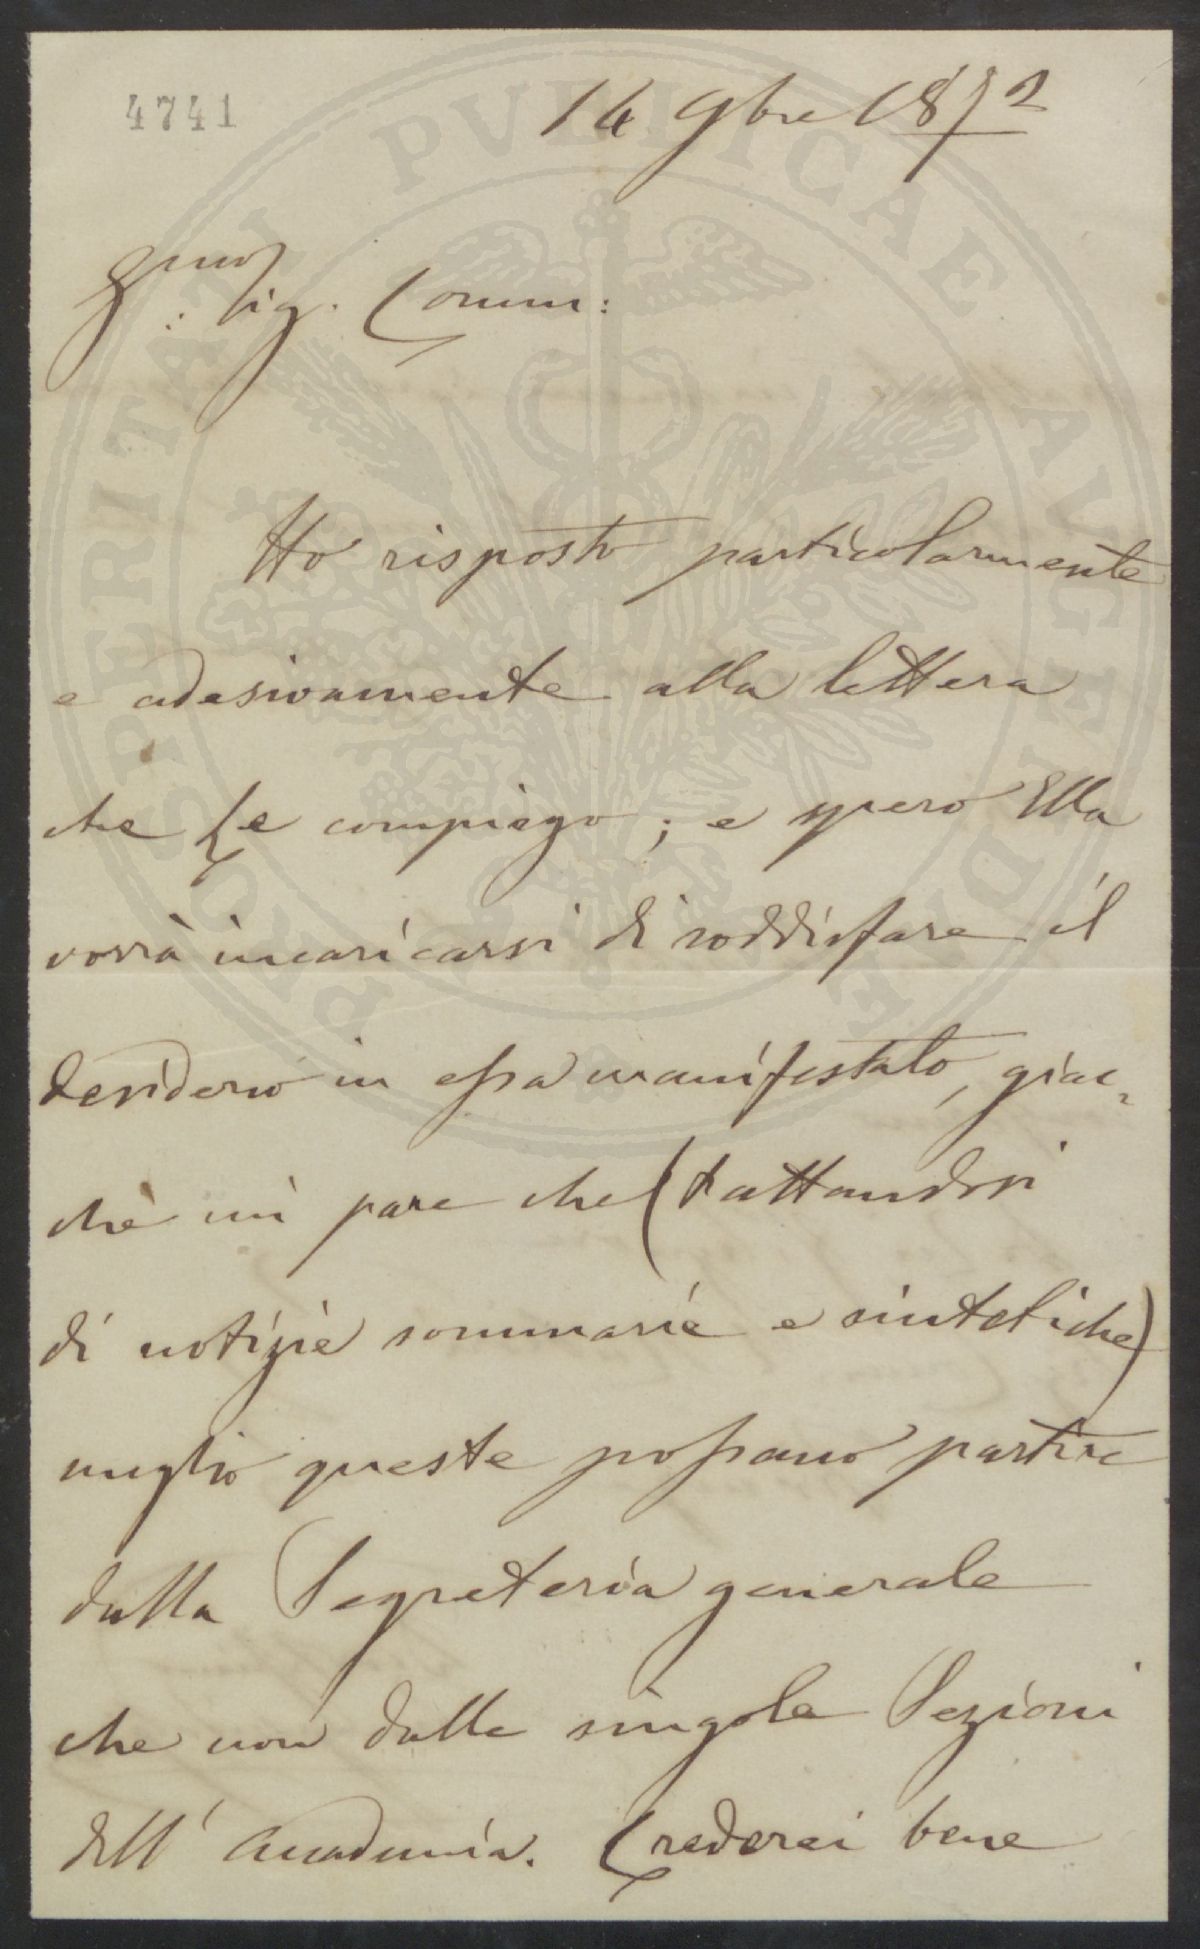 4741
14 9bre 1872
Egmo Sig. Comm:
Ho risposto particolarmente
e adesivamente alla lettera
che Le compiego; e spero Ella
vorrà incaricarsi di soddisfare il
desiderio in essa manifestato, giac-
chè mi pare che (trattandosi
di notizie sommarie e sintetiche)
meglio queste possano partire
dalla Segreteria generale
che non dalle singole Sezioni
dell'Accademia. Crederei bene
PROSPERITATI PVBLICAE AVGENDAE